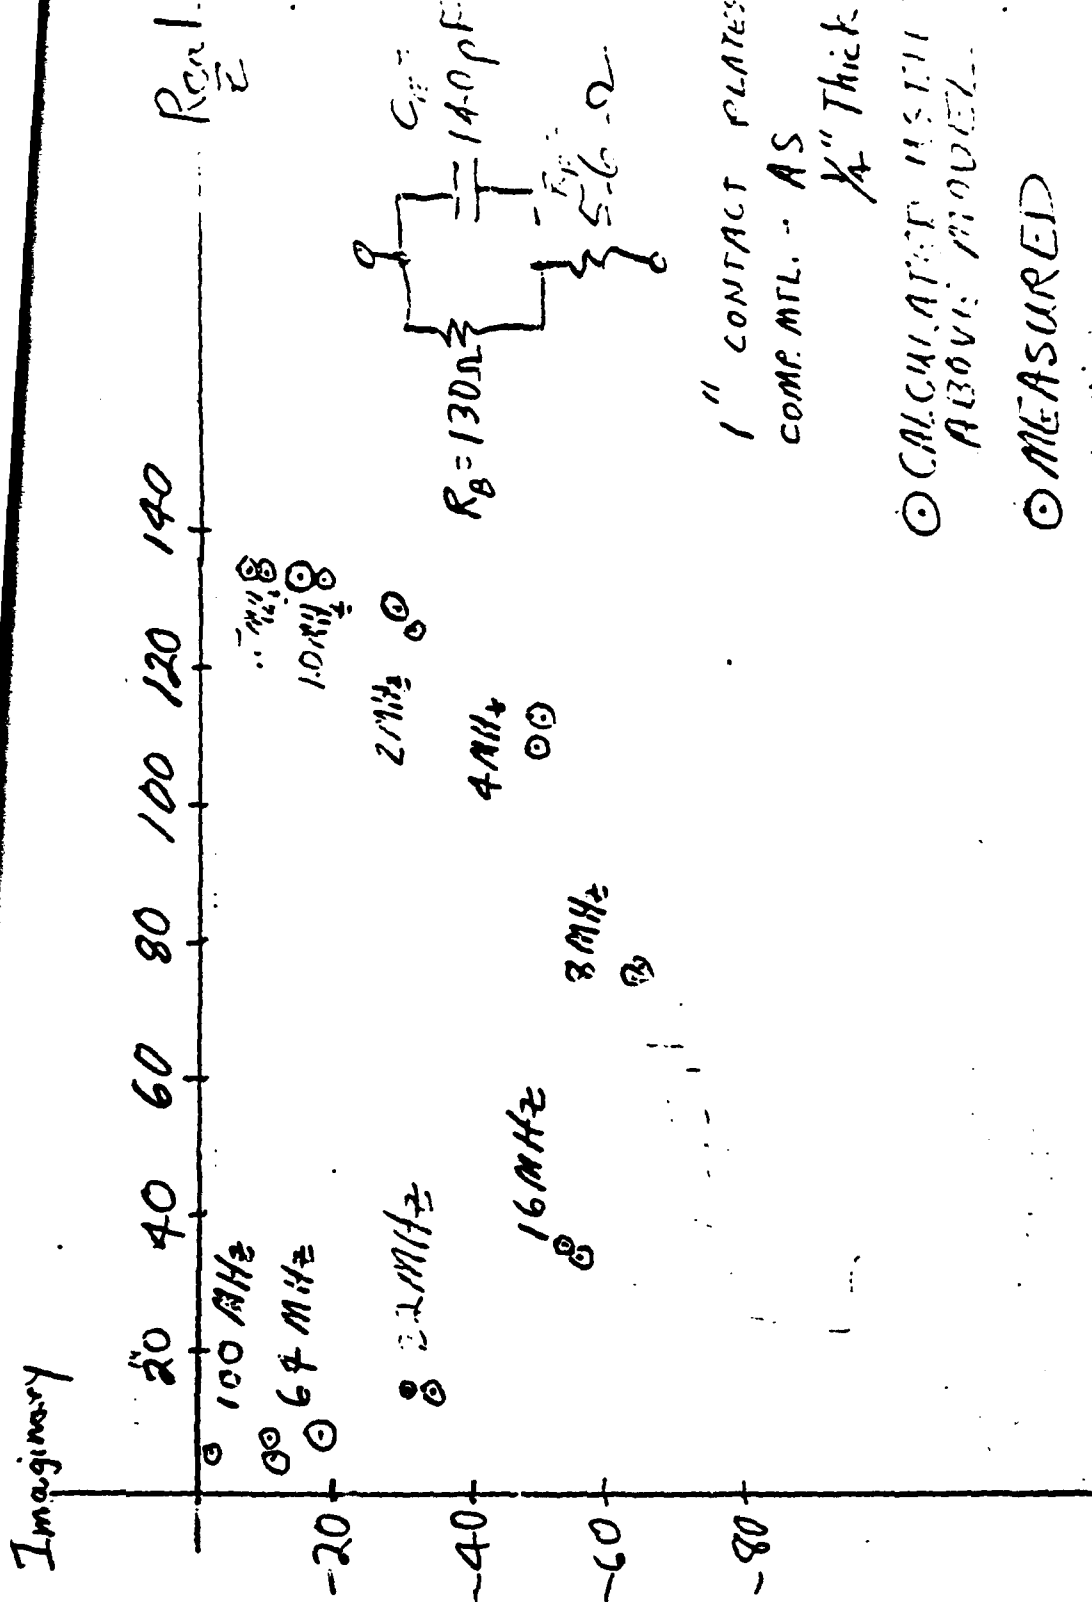 Imaginary
Real
Z
20
40
60
80
100
120
140
-20
-40
-60
-80
100 MHz
64 MHz
16 MHz
8 MHz
4 MHz
2 MHz
1.0 MHz
R_B = 130Ω
140 pF
5.6 Ω
1" CONTACT PLATES
COMP. MTL. - AS
1/4" Thick
⊙ CALCULATED
ABOVE MODEL
⊙ MEASURED